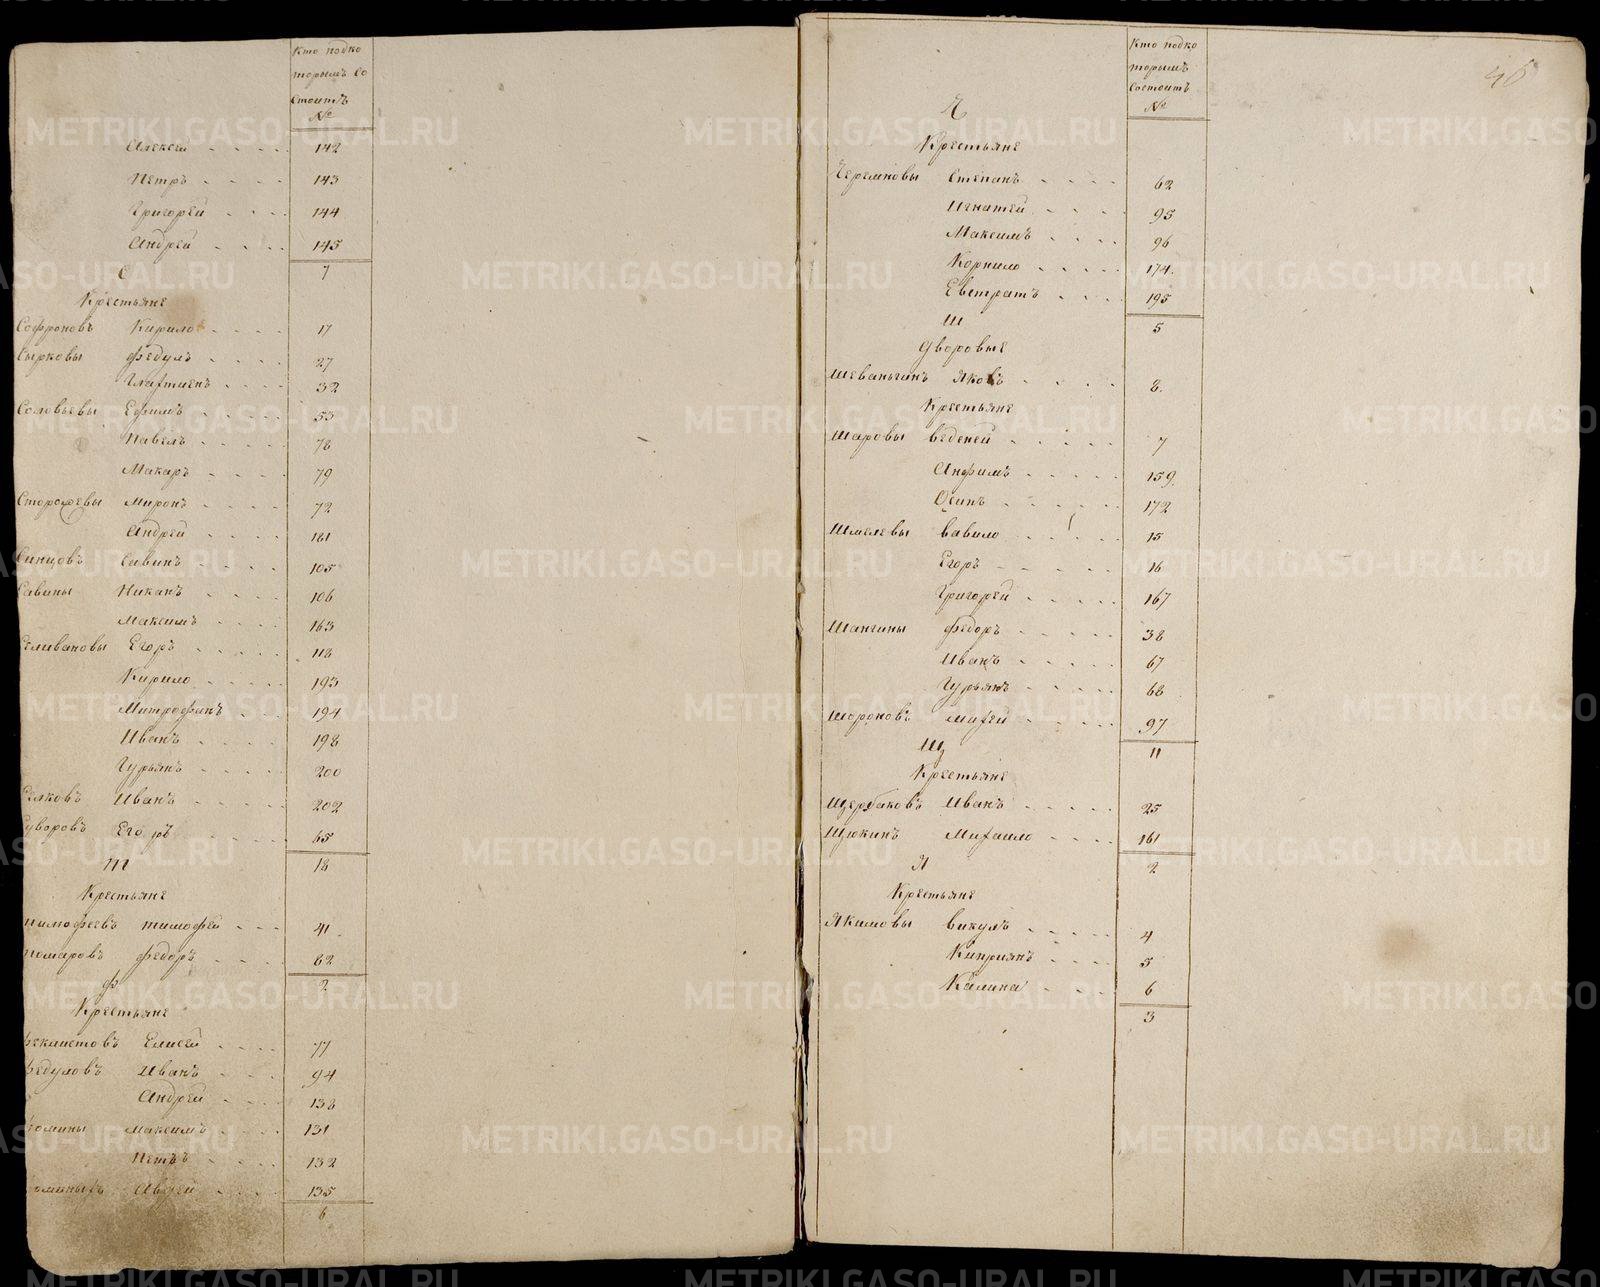 Кто подко
торымъ со
стоитъ
№
Алексей 142
Петръ 143
Григорей 144
Андрей 145
7
С
Крестьяне
Софроновъ Кирило 17
Сырковы Федулъ 27
32
Соловьевы Ефимъ 53
Павелъ 78
Макаръ 79
Сторожевы Миронъ 72
Андрей 181
Синцовъ Савинъ 105
Савины Никанъ 106
Максимъ 163
Селивановы Егоръ 118
Кирило 193
Митрофанъ 194
Иванъ 198
Гурьянъ 200
Иванъ 202
Суворовъ Егоръ 65
18
Т
Крестьяне
Тимофеевъ Тимофей 41
Федоръ 82
2
Ф
Крестьяне
Феклистовъ Елисей 77
Федуловъ Иванъ 94
Андрей 138
Фомины Максимъ 131
Петръ 132
Авдей 135
6
Кто подко
торымъ
состоитъ
№
46
Ч
Крестьяне
Черемновы Степанъ 62
Игнатей 95
Максимъ 96
Корнило 174
Евстратъ 195
5
Ш
Дворовые
Шеваньгинъ Яковъ 8
Крестьяне
Шаровы Веденей 7
Анфимъ 159
Осипъ 172
Шмелевы Вавило 15
Егоръ 16
Григорей 167
Шангины Федоръ 38
Иванъ 67
Гурьянъ 68
Шороновъ Михей 97
11
Щ
Крестьяне
Щербаковъ Иванъ 25
Щюкинъ Михаило 161
2
Я
Крестьяне
Якимовы Викулъ 4
Киприянъ 5
Калина 6
3
METRIKI.GASO-URAL.RU